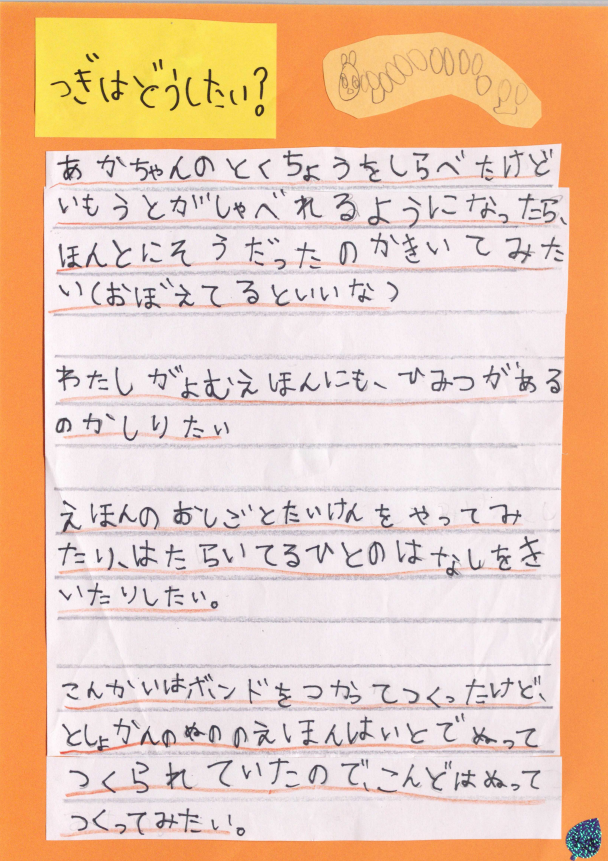 つぎはどうしたい?
あかちゃんのとくちょうをしらべたけど
いもうとがしゃべれるようになったら、
ほんとにそうだったのかきいてみた
い(おぼえてるといいな)
わたしがよむえほんにも、ひみつがある
のかしりたい
えほんのおしごとたいけんをやってみ
たり、はたらいてるひとのはなしをき
いたりしたい。
こんかいはボンドをつかってつくったけど、
としょかんのぬののえほんはいとでぬって
つくられていたので、こんどはぬって
つくってみたい。